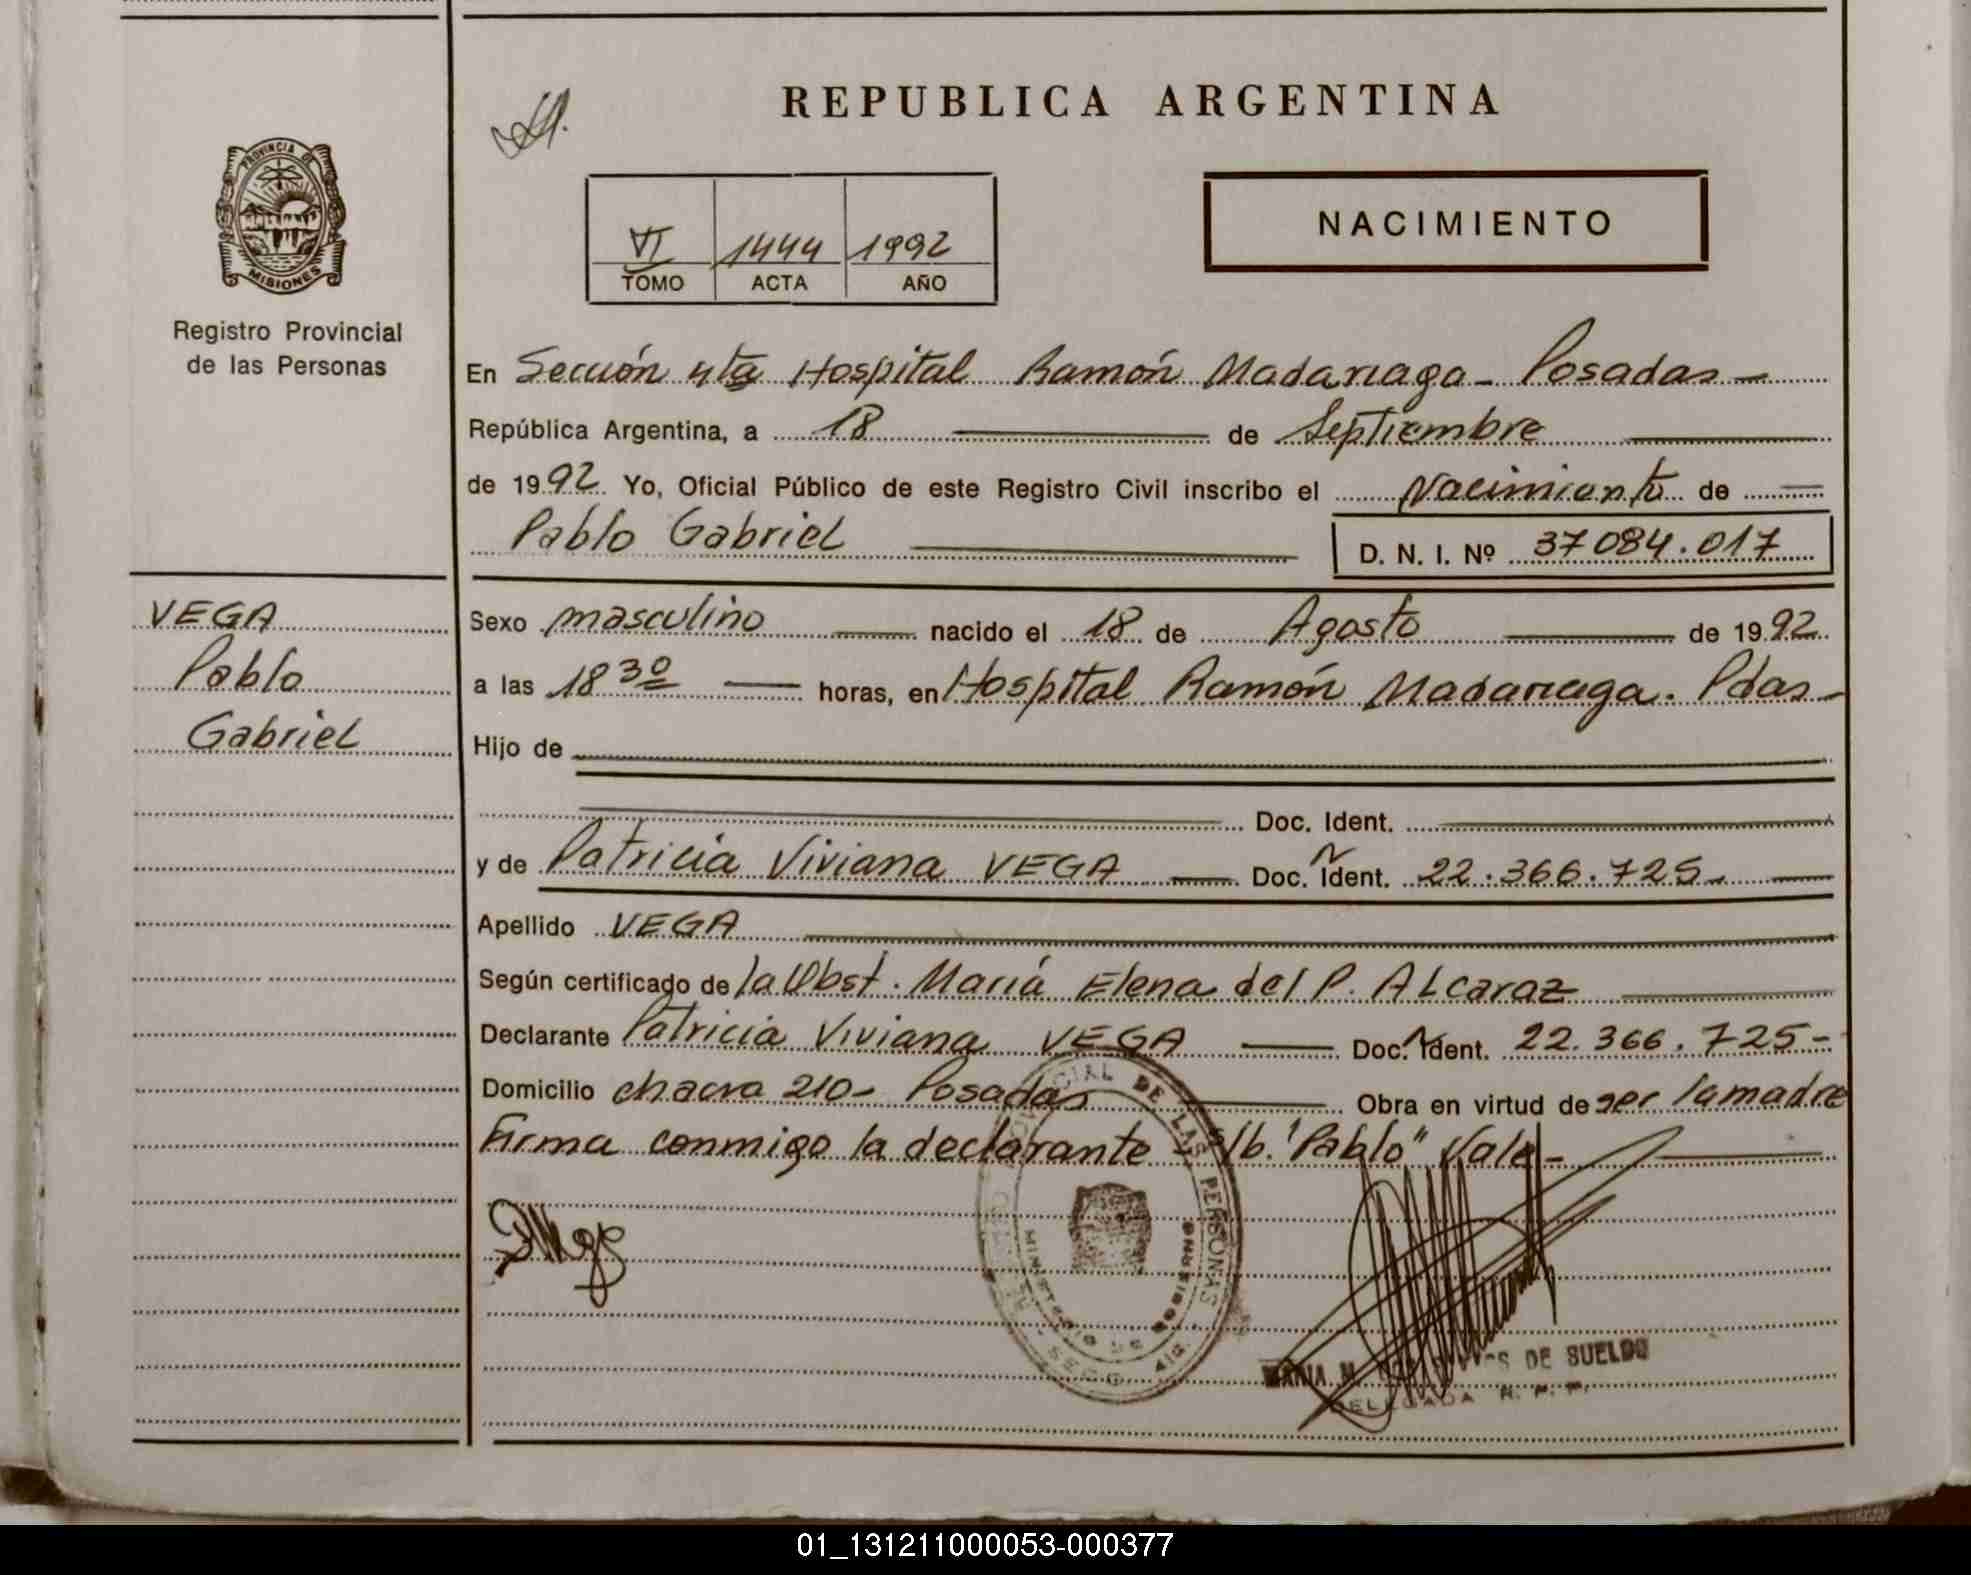 REPUBLICA ARGENTINA
PROVINCIA DE
MISIONES
Registro Provincial
de las Personas
VI 1444 1992
TOMO ACTA AÑO
NACIMIENTO
En Sección 4ta Hospital Ramón Madariaga - Posadas -
República Argentina, a 18 de Septiembre
de 1992 Yo, Oficial Público de este Registro Civil inscribo el Nacimiento de
Pablo Gabriel D. N. I. Nº 37084.017
VEGA
Pablo
Gabriel
Sexo masculino nacido el 18 de Agosto de 1992
a las 18 30 horas, en Hospital Ramón Madariaga. Pdas -
Hijo de
Doc. Ident.
y de Patricia Viviana VEGA Doc. Ident. 22.366.725-
Apellido VEGA
Según certificado de la Obst. María Elena del P. ALcaraz
Declarante Patricia Viviana VEGA Doc. Ident. 22.366.725-
Domicilio chacra 210- Posadas Obra en virtud de ser la madre
Firma conmigo la declarante - s/b. "Pablo" Vale -
DE LAS PERSONAS
MINISTERIO DE GOBIERNO
SECC. 4ta.
MARIA M. DE SUELDO
DELEGADA R. P. P.
01_131211000053-000377